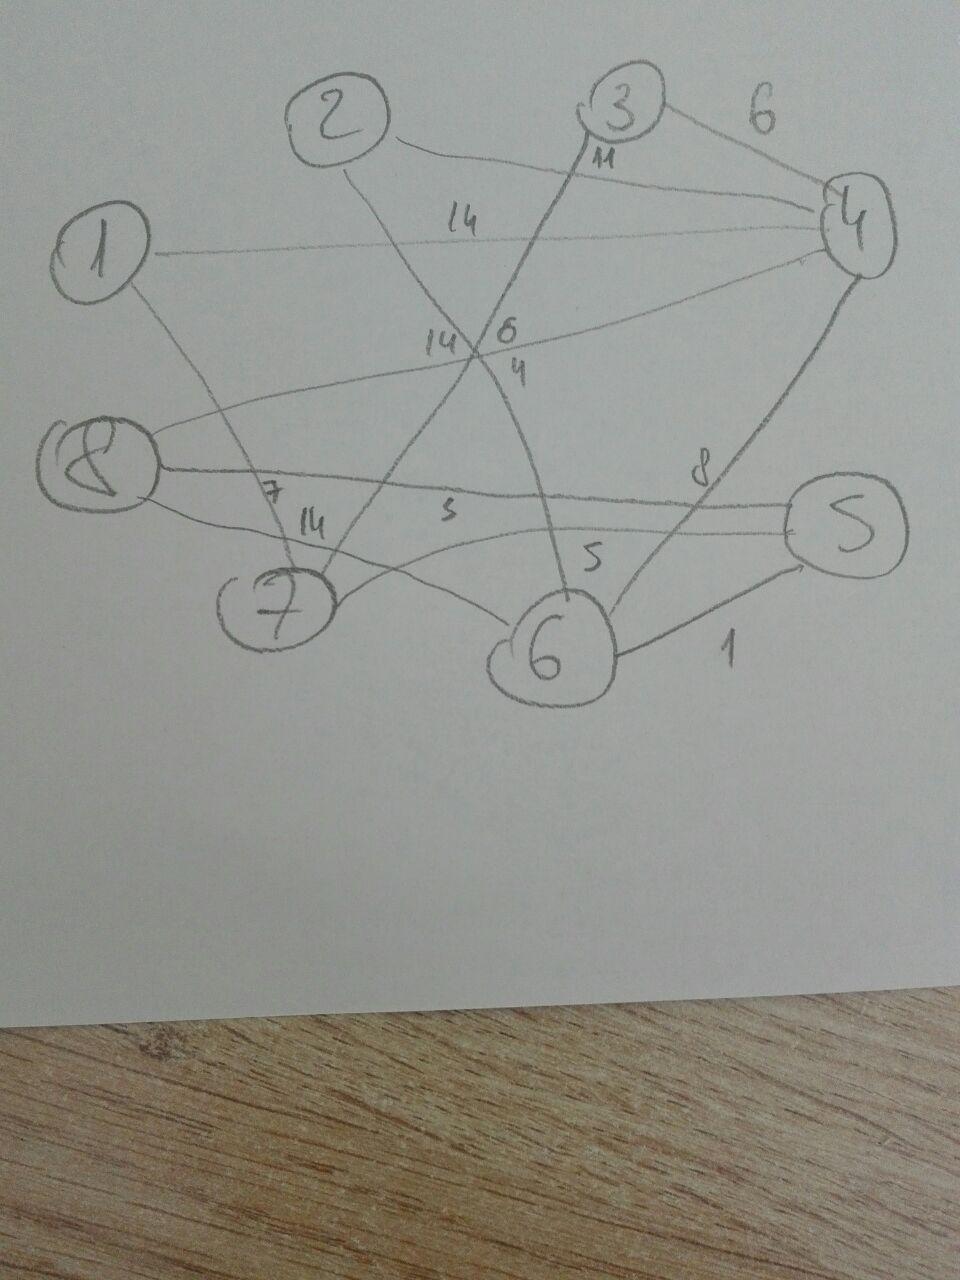 2
3
6
11
4
14
1
14
6
4
8
8
7
3
5
14
5
7
6
1